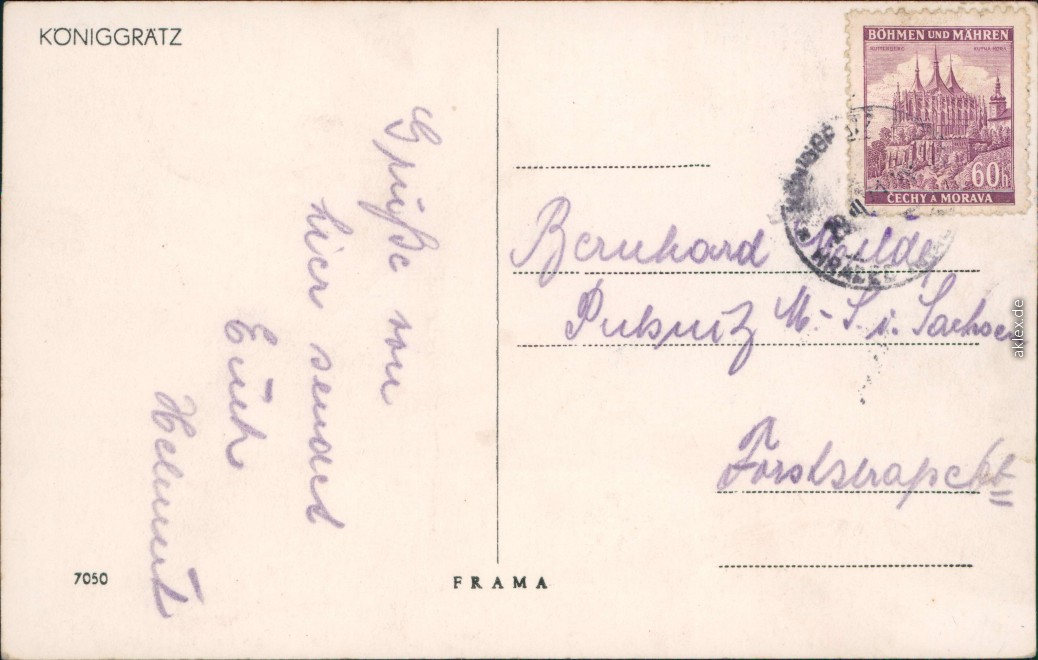 KÖNIGGRÄTZ
Grüße von
hier sendet
Euch
Helmut
7050
FRAMA
BÖHMEN UND MÄHREN
KUTTENBERG KUTNÁ HORA
60h
ČECHY A MORAVA
Bernhard
Pulsnitz M-S i. Sachsen
aklex.de